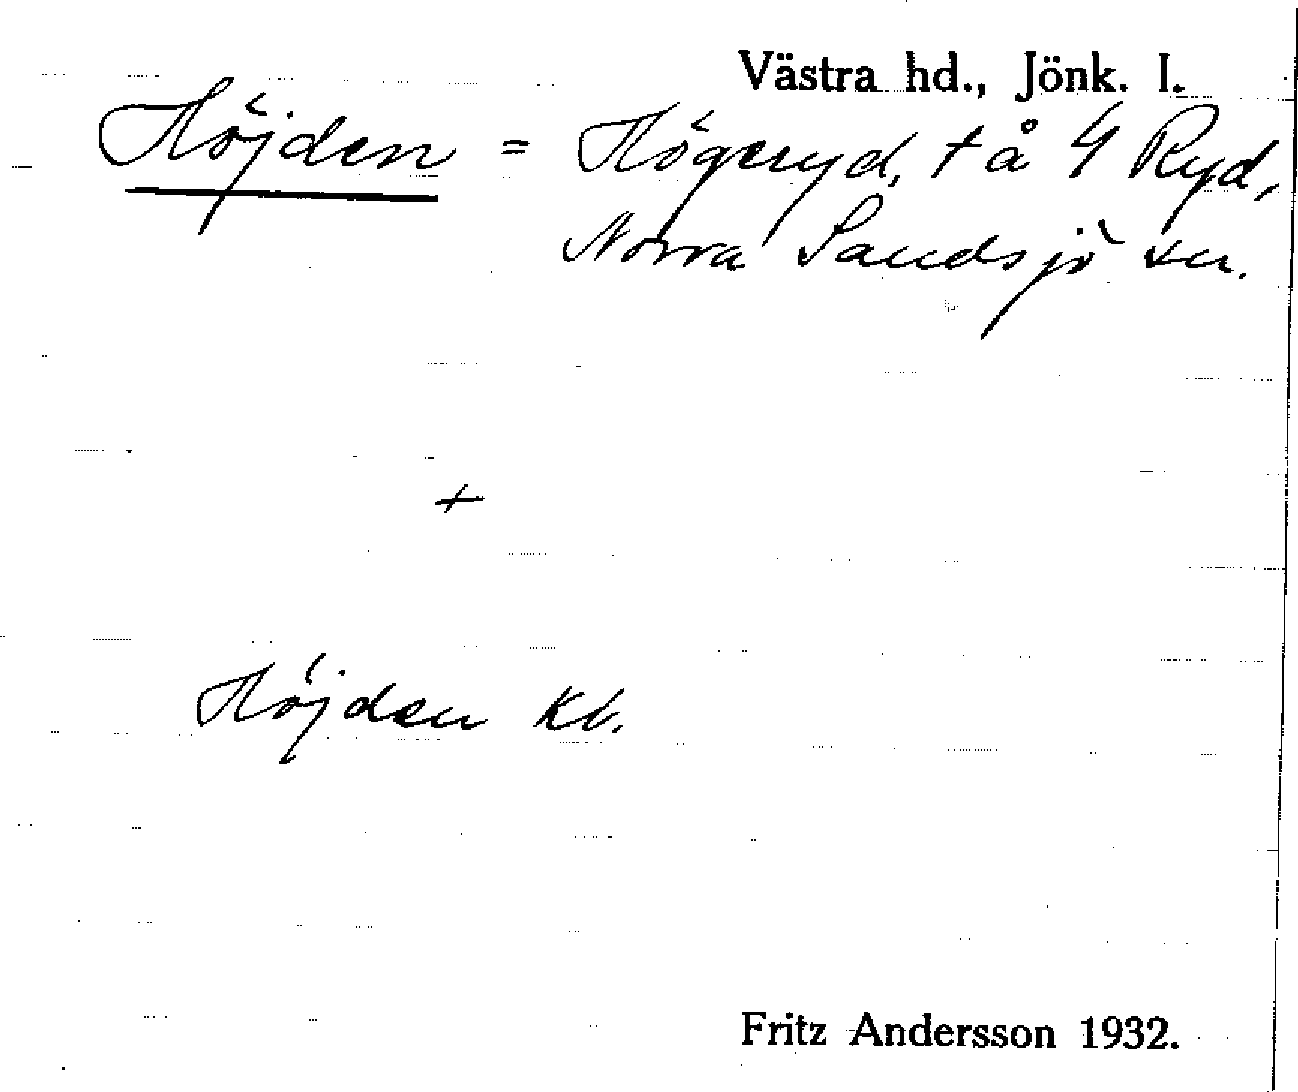 Västra hd., Jönk. l.
Höjden = Högeryd, t å 4 Ryd,
Norra Sandsjö sn.
+
Höjden Kb.
Fritz Andersson 1932.